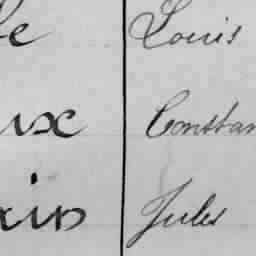 le Louis
ux Constan
xin Jules